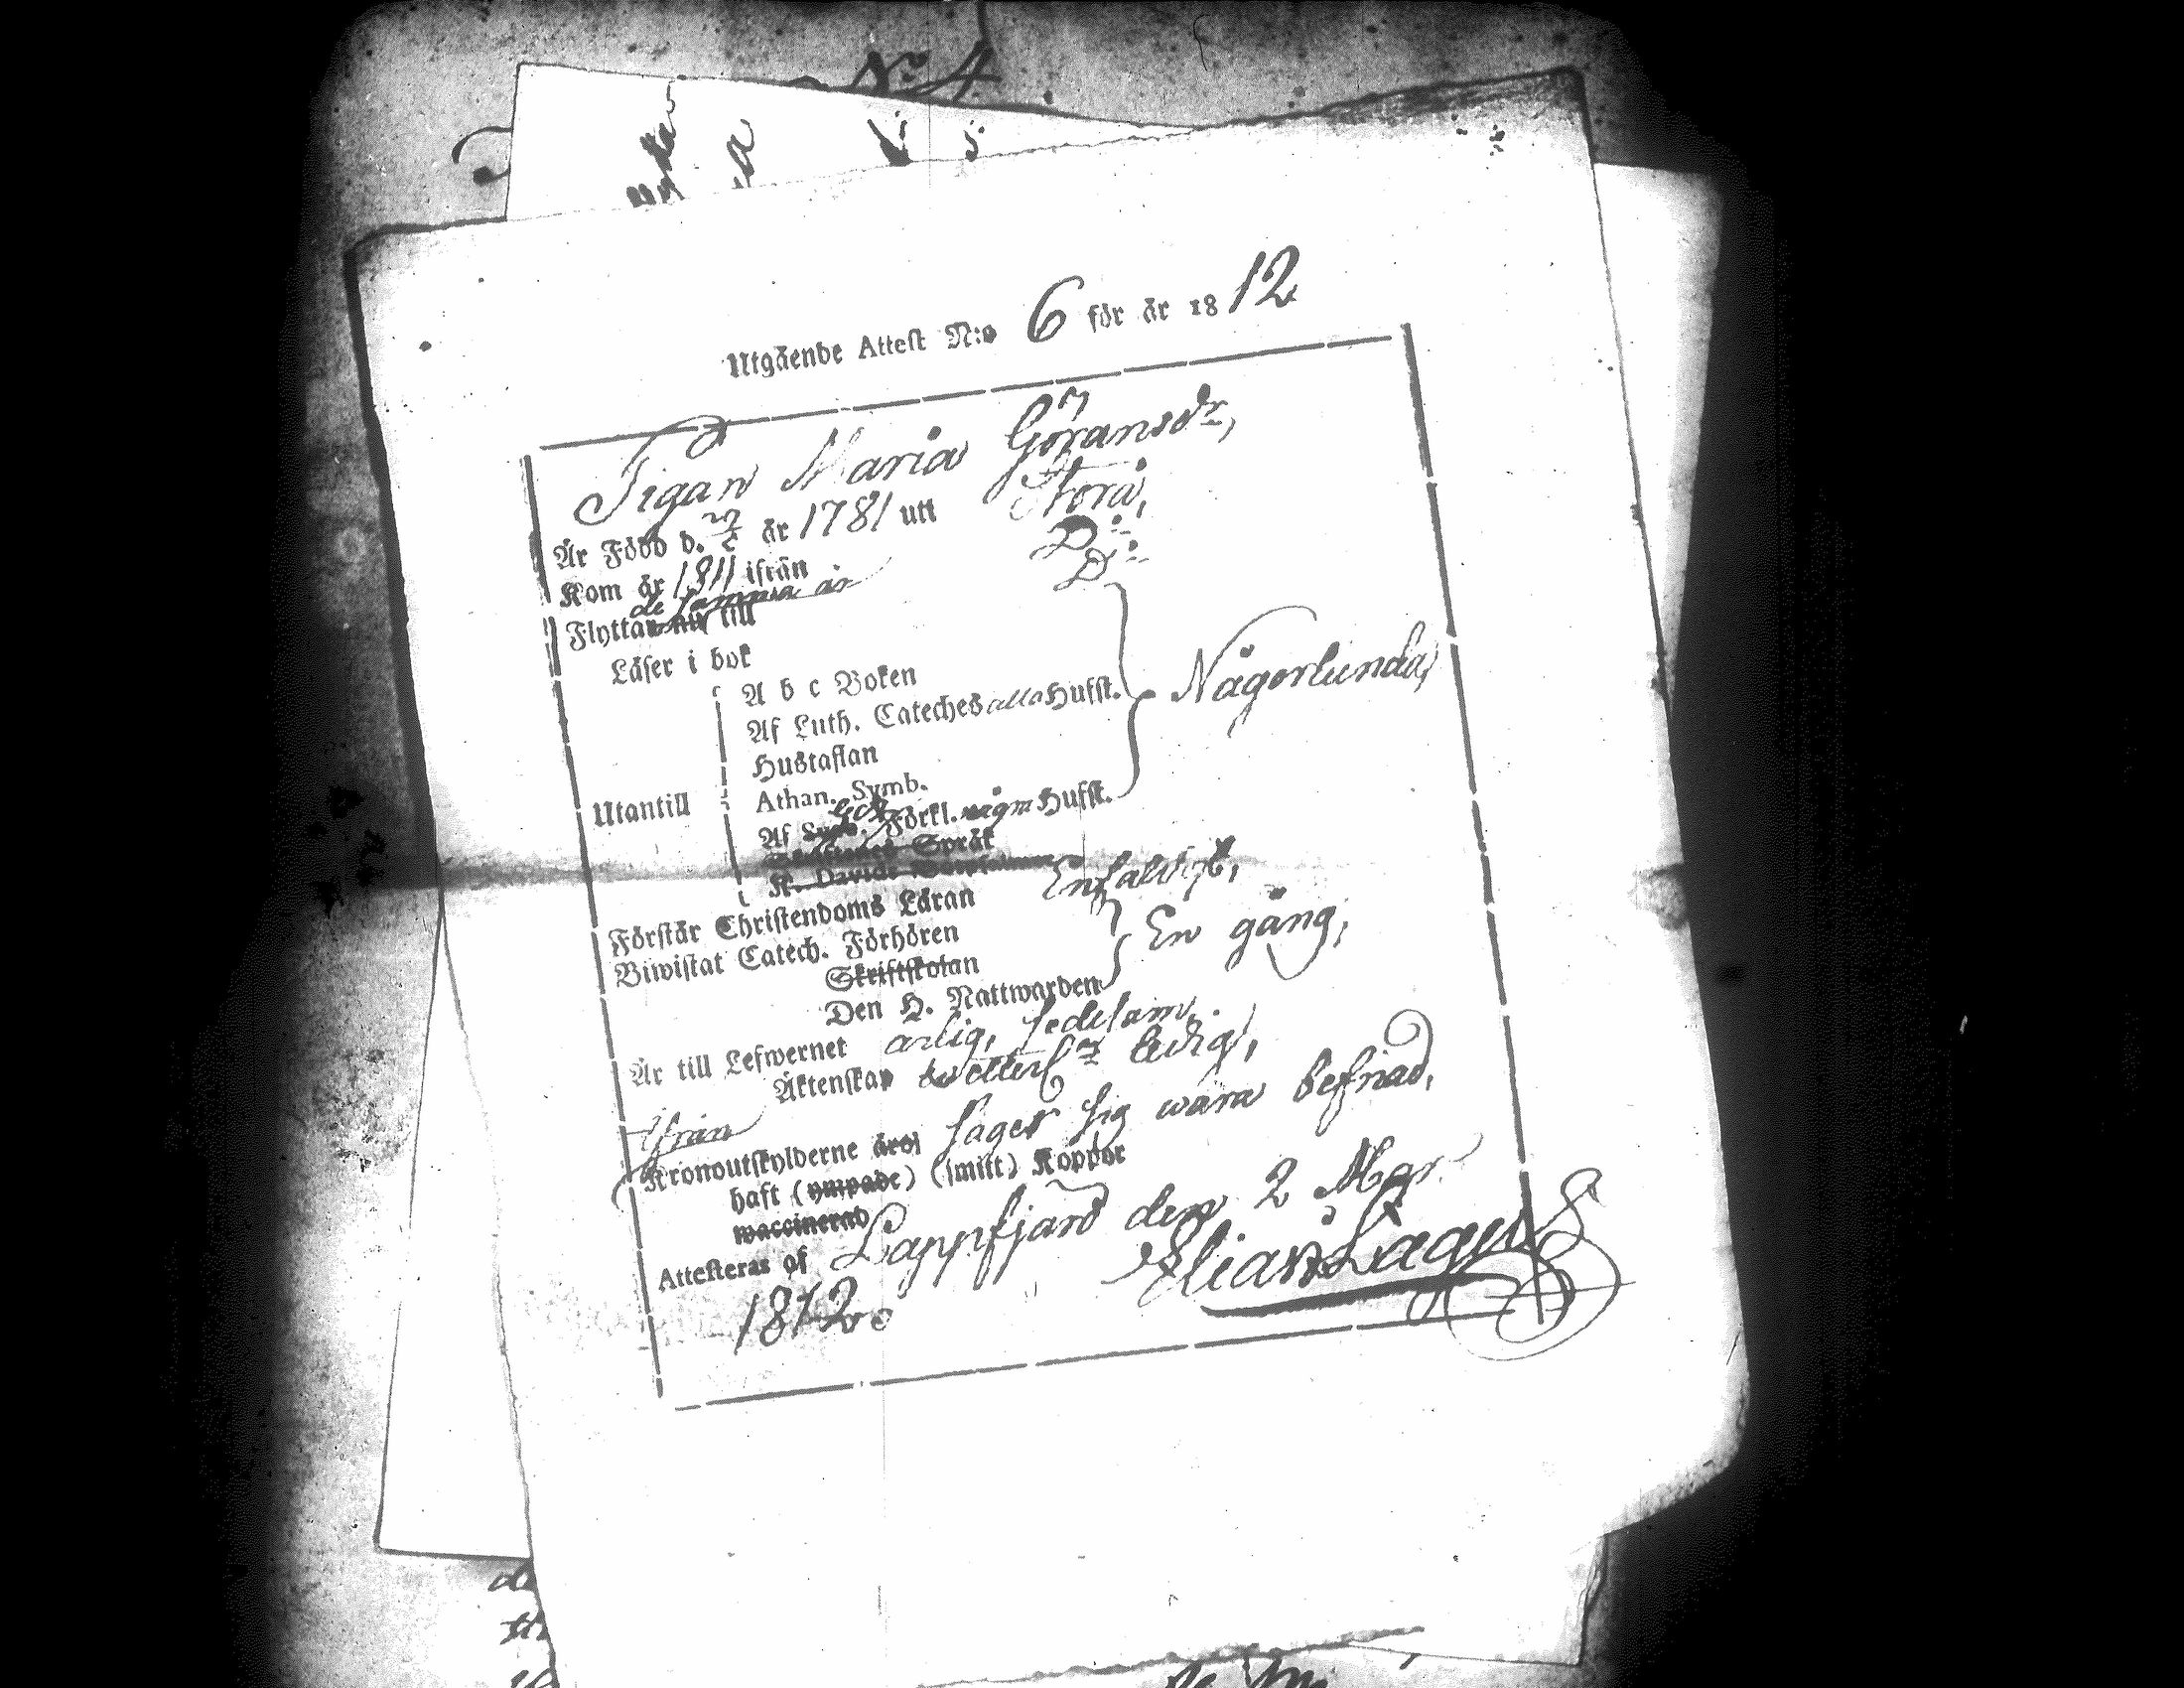 N:o 4
Utgående Attest N:o 6 för år 1812
Pigan Maria Göransdr,
Är Född d. 27/2 år 1781 utt Storå,
Kom år 1811 ifrån D:o
de samma år
Flyttar nu till D:o
Läser i bok
A b c Boken
Af Luth. Cateches alla Hufst.
Hustaflan
Någorlunda,
Utantill
Athan. Symb.
Af Förkl. några Hufst.
Språk
K. Davids
Förstår Christendoms Läran Enfaldigt,
Biwistat Catech. Förhören
Skriftskolan
En gång,
Den H. Nattwarden
Är till Lefwernet ärlig, sedesam.
Äktenskap ledig,
Ifrån
Kronoutskylderne säger sig wara befriad,
haft (ympade) (smitt) Koppor
waccinerad
Attesteras af Lappfjärd den 2 Mar
1812. Elias Lagus